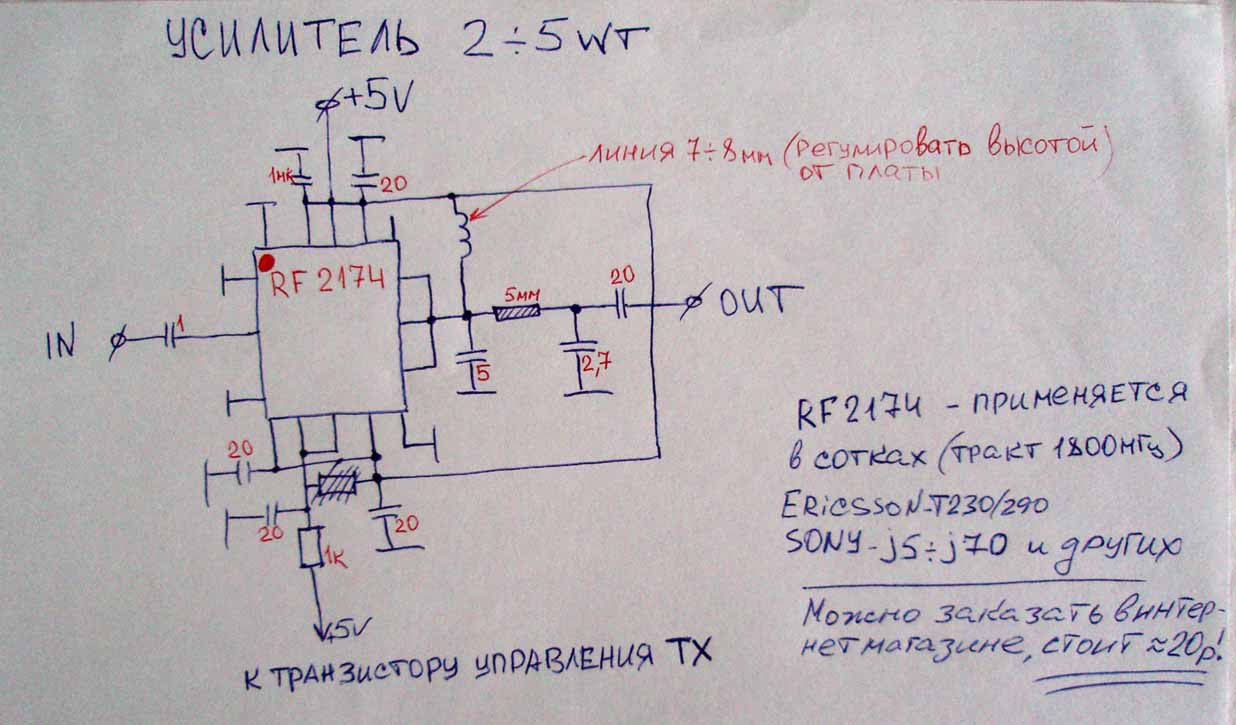 УСИЛИТЕЛЬ 2÷5WT
+5V
1мк
20
ЛИНИЯ 7÷8мм (РЕГУЛИРОВАТЬ ВЫСОТОЙ)
ОТ ПЛАТЫ
RF 2174
IN
1
5мм
20
OUT
5
2,7
20
20
20
1К
+5V
К ТРАНЗИСТОРУ УПРАВЛЕНИЯ TX
RF2174 - ПРИМЕНЯЕТСЯ
В СОТКАХ (ТРАКТ 1800МГЦ)
ERICSSON-T230/290
SONY-j5÷j70 и других
Можно заказать в интер-
нет магазине, стоит ≈20р!